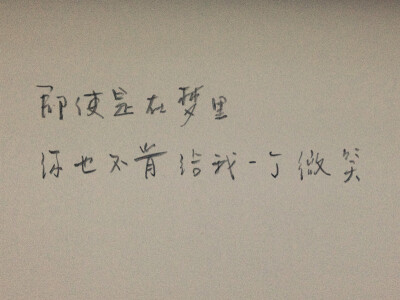 即使是在梦里
你也不肯给我一个微笑